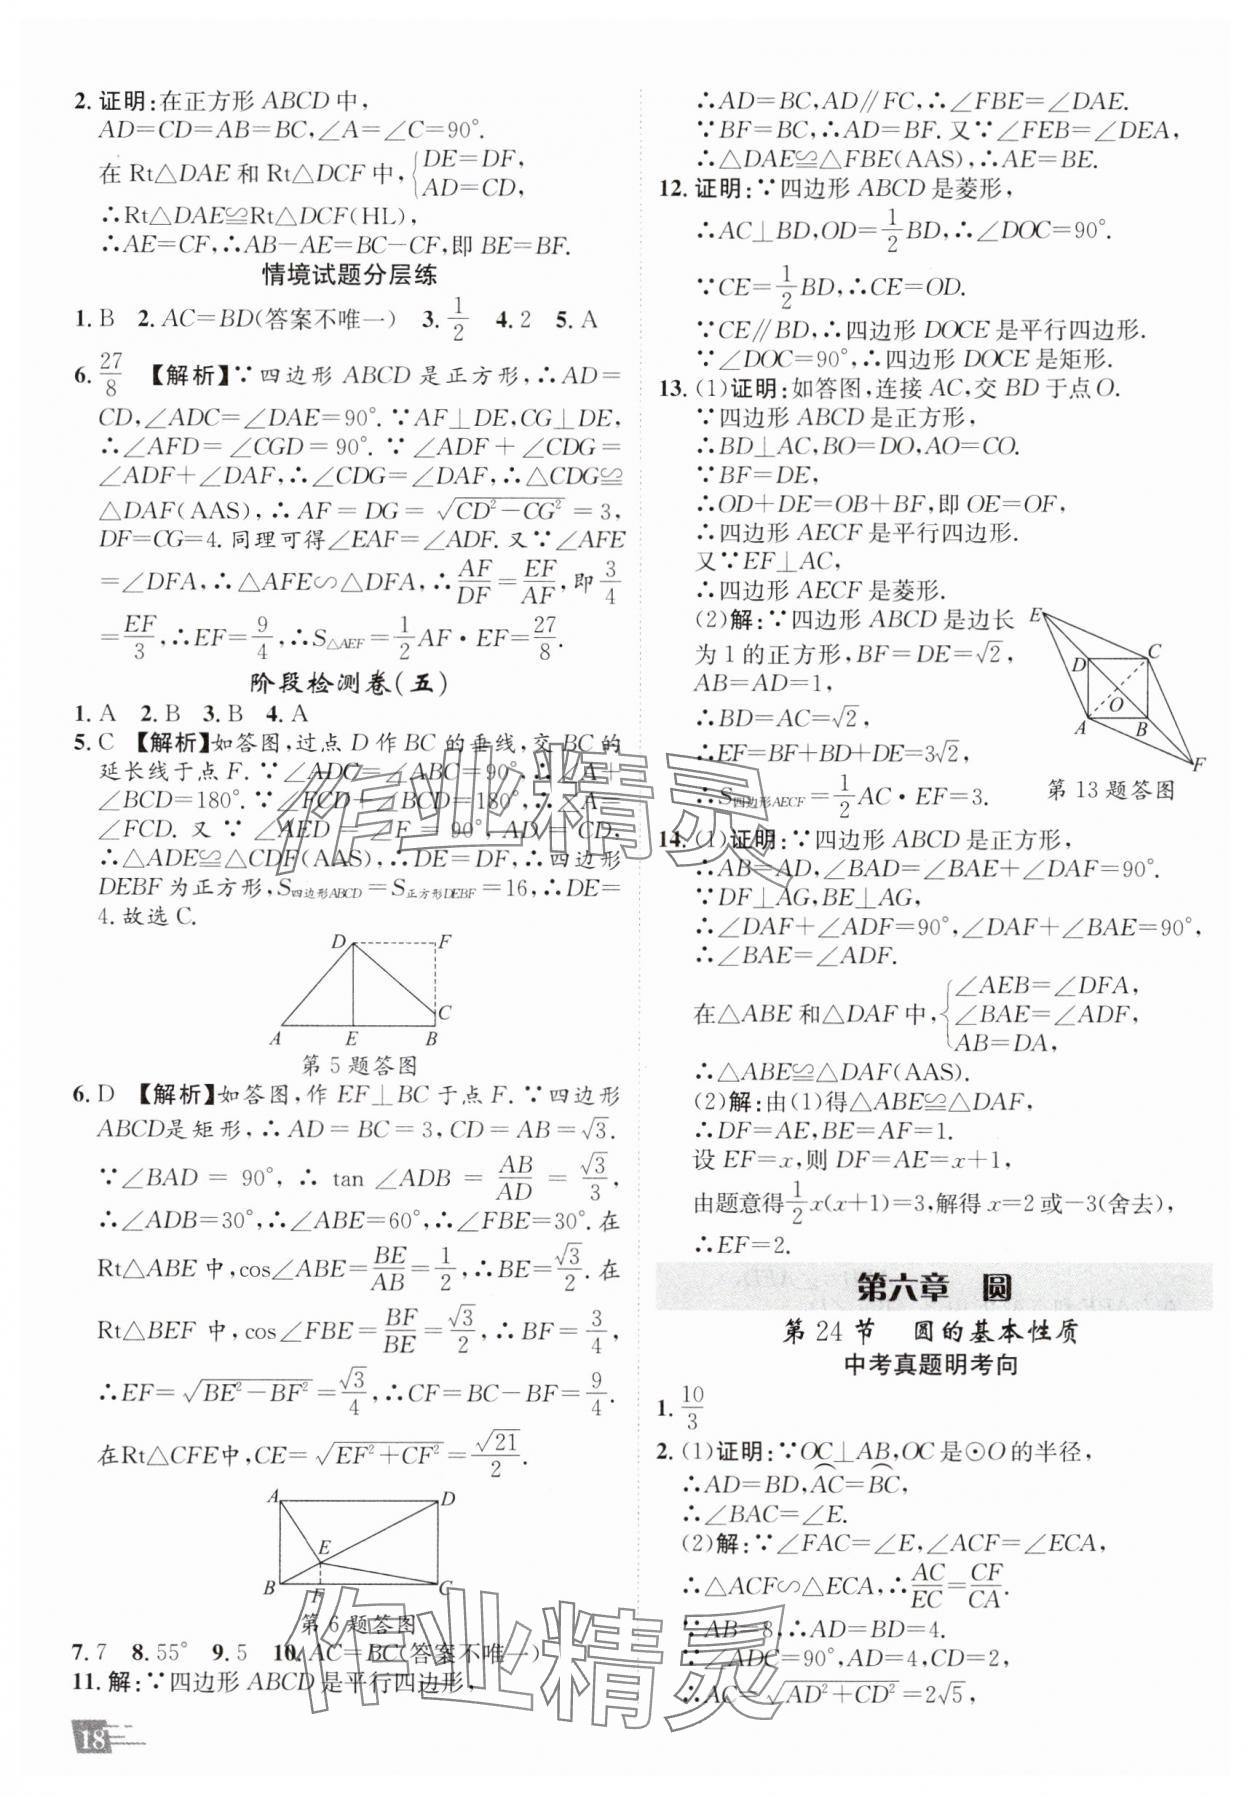 2. 证明:在正方形 ABCD 中,
AD=CD=AB=BC,∠A=∠C=90°.
在 Rt△DAE 和 Rt△DCF 中,{DE=DF, AD=CD,
∴Rt△DAE≌Rt△DCF(HL),
∴AE=CF,∴AB-AE=BC-CF,即 BE=BF.
情境试题分层练
1. B 2. AC=BD(答案不唯一) 3. 1/2 4. 2 5. A
6. 27/8 【解析】∵四边形 ABCD 是正方形,∴AD=
CD,∠ADC=∠DAE=90°.∵AF⊥DE,CG⊥DE,
∴∠AFD=∠CGD=90°.∵∠ADF+∠CDG=
∠ADF+∠DAF,∴∠CDG=∠DAF,∴△CDG≌
△DAF(AAS),∴AF=DG=√(CD²-CG²)=3,
DF=CG=4.同理可得∠EAF=∠ADF.又∵∠AFE
=∠DFA,∴△AFE∽△DFA,∴AF/DF=EF/AF,即 3/4
=EF/3,∴EF=9/4,∴S△AEF=1/2 AF·EF=27/8.
阶段检测卷(五)
1. A 2. B 3. B 4. A
5. C 【解析】如答图,过点 D 作 BC 的垂线,交 BC 的
延长线于点 F.∵∠ADC=∠ABC=90°,∴∠A+
∠BCD=180°.∵∠FCD+∠BCD=180°,∴∠A=
∠FCD.又∵∠AED=∠F=90°,AD=CD,
∴△ADE≌△CDF(AAS),∴DE=DF,∴四边形
DEBF 为正方形,S四边形ABCD=S正方形DEBF=16,∴DE=
4.故选 C.
D F
C
A E B
第 5 题答图
6. D 【解析】如答图,作 EF⊥BC 于点 F.∵四边形
ABCD是矩形,∴AD=BC=3,CD=AB=√3.
∵∠BAD=90°,∴tan∠ADB=AB/AD=√3/3,
∴∠ADB=30°,∴∠ABE=60°,∴∠FBE=30°.在
Rt△ABE 中,cos∠ABE=BE/AB=1/2,∴BE=√3/2.在
Rt△BEF 中,cos∠FBE=BF/BE=√3/2,∴BF=3/4,
∴EF=√(BE²-BF²)=√3/4,∴CF=BC-BF=9/4.
在Rt△CFE中,CE=√(EF²+CF²)=√21/2.
A D
E
B F C
第 6 题答图
7. 7 8. 55° 9. 5 10. AC=BC(答案不唯一)
11. 解:∵四边形 ABCD 是平行四边形,
18
∴AD=BC,AD∥FC,∴∠FBE=∠DAE.
∵BF=BC,∴AD=BF.又∵∠FEB=∠DEA,
∴△DAE≌△FBE(AAS),∴AE=BE.
12. 证明:∵四边形 ABCD 是菱形,
∴AC⊥BD,OD=1/2 BD,∴∠DOC=90°.
∵CE=1/2 BD,∴CE=OD.
∵CE∥BD,∴四边形 DOCE 是平行四边形.
∵∠DOC=90°,∴四边形 DOCE 是矩形.
13. (1)证明:如答图,连接 AC,交 BD 于点 O.
∵四边形 ABCD 是正方形,
∴BD⊥AC,BO=DO,AO=CO.
∵BF=DE,
∴OD+DE=OB+BF,即 OE=OF,
∴四边形 AECF 是平行四边形.
又∵EF⊥AC,
∴四边形 AECF 是菱形.
(2)解:∵四边形 ABCD 是边长
为 1 的正方形,BF=DE=√2,
AB=AD=1,
∴BD=AC=√2,
∴EF=BF+BD+DE=3√2,
∴S四边形AECF=1/2 AC·EF=3.
E
D C
O
A B
F
第 13 题答图
14. (1)证明:∵四边形 ABCD 是正方形,
∴AB=AD,∠BAD=∠BAE+∠DAF=90°.
∵DF⊥AG,BE⊥AG,
∴∠DAF+∠ADF=90°,∠DAF+∠BAE=90°,
∴∠BAE=∠ADF.
在△ABE 和△DAF 中,{∠AEB=∠DFA, ∠BAE=∠ADF, AB=DA,
∴△ABE≌△DAF(AAS).
(2)解:由(1)得△ABE≌△DAF,
∴DF=AE,BE=AF=1.
设 EF=x,则 DF=AE=x+1,
由题意得1/2 x(x+1)=3,解得 x=2 或-3(舍去),
∴EF=2.
第六章 圆
第 24 节 圆的基本性质
中考真题明考向
1. 10/3
2. (1)证明:∵OC⊥AB,OC 是⊙O 的半径,
∴AD=BD,⌒AC=⌒BC,
∴∠BAC=∠E.
(2)解:∵∠FAC=∠E,∠ACF=∠ECA,
∴△ACF∽△ECA,∴AC/EC=CF/CA.
∵AB=8,∴AD=BD=4.
∵∠ADC=90°,AD=4,CD=2,
∴AC=√(AD²+CD²)=2√5,
作业精灵
作业精灵